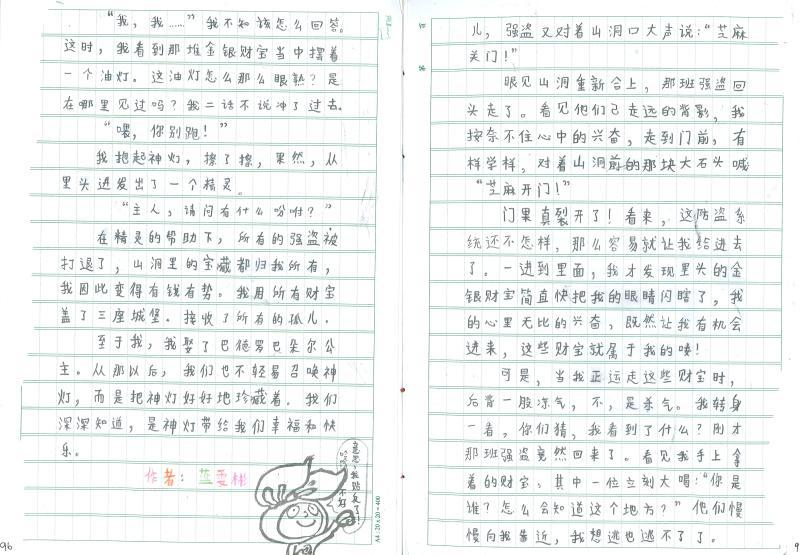 “我，我……”我不知该怎么回答。
这时，我看到那堆金银财宝当中摆着
一个油灯。这油灯怎么那么眼熟？是
在哪里见过吗？我二话不说冲了过去。
“喂，你别跑！”
我抱起神灯，擦了擦，果然，从
里头迸发出了一个精灵。
“主人，请问有什么吩咐？”
在精灵的帮助下，所有的强盗被
打退了，山洞里的宝藏都归我所有，
我因此变得有钱有势。我用所有财宝
盖了三座城堡。接收了所有的孤儿。
至于我，我娶了巴德罗巴朵尔公
主。从那以后，我们也不轻易召唤神
灯，而是把神灯好好地珍藏着。我们
深深知道，是神灯带给我们幸福和快
乐。
作者：
96
A4:20x20=400
儿，强盗又对着山洞口大声说：“芝麻
关门！”
眼见山洞重新合上，那班强盗回
头走了。看见他们已走远的背影，我
按奈不住心中的兴奋，走到门前，有
样学样，对着山洞前的那块大石头喊
“芝麻开门！”
门果真裂开了！看来，这防盗系
统还不怎样，那么容易就让我给进去
了。一进到里面，我才发现里头的金
银财宝简直快把我的眼睛闪瞎了，我
的心里无比的兴奋，既然让我有机会
进来，这些财宝就属于我的喽！
可是，当我正运走这些财宝时，
后背一股凉气，不，是杀气。我转身
一看，你们猜，我看到了什么？刚才
那班强盗竟然回来了。看见我手上拿
着的财宝，其中一位立刻大喝：“你是
谁？怎么会知道这个地方？”他们慢
慢向我靠近，我想逃也逃不了了。